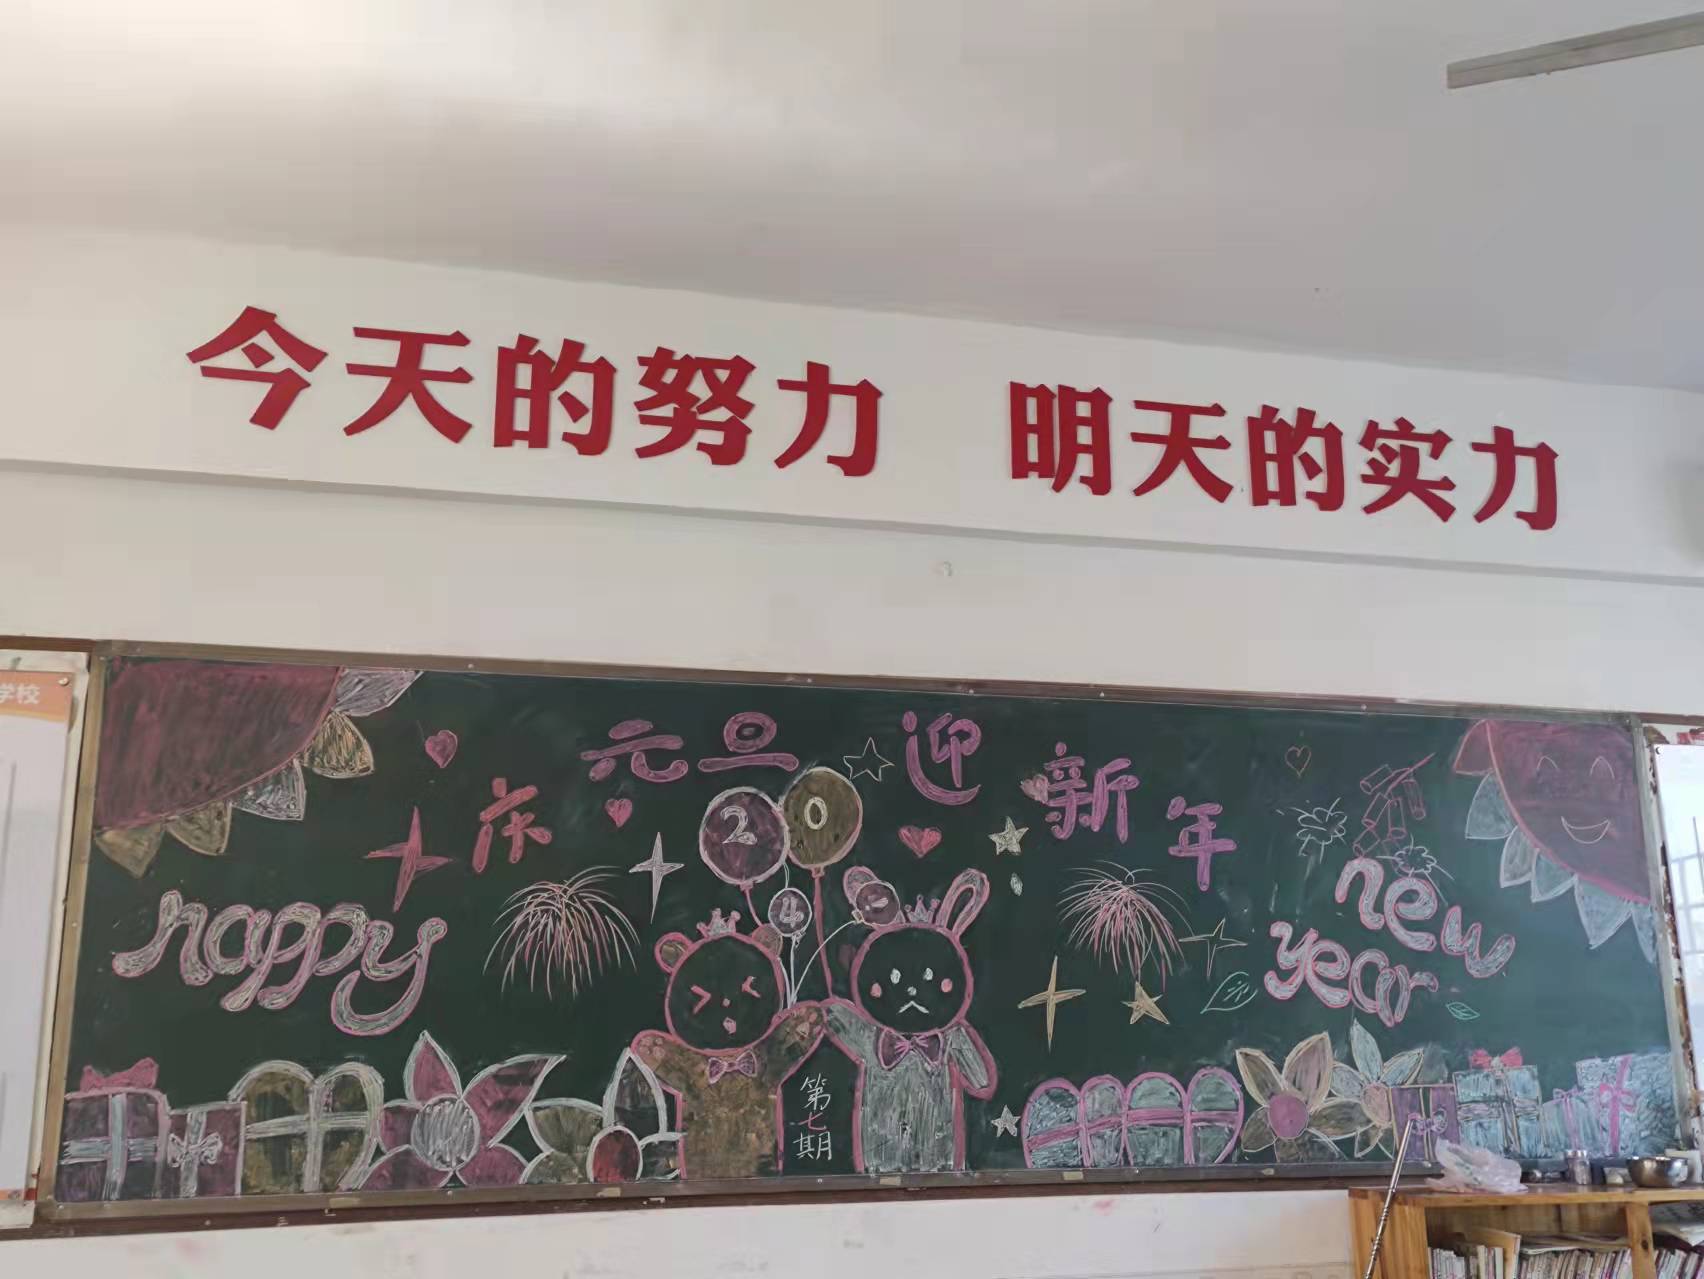 今天的努力 明天的实力
学校
庆元旦迎新年
20
4
happy
new
year
第七期